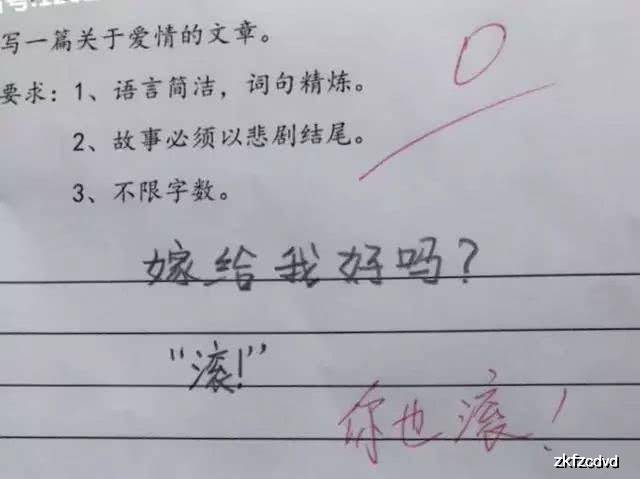 写一篇关于爱情的文章。
0
要求：1、语言简洁，词句精炼。
2、故事必须以悲剧结尾。
3、不限字数。
嫁给我好吗？
“滚！”
你也滚！
zkfzcdvd